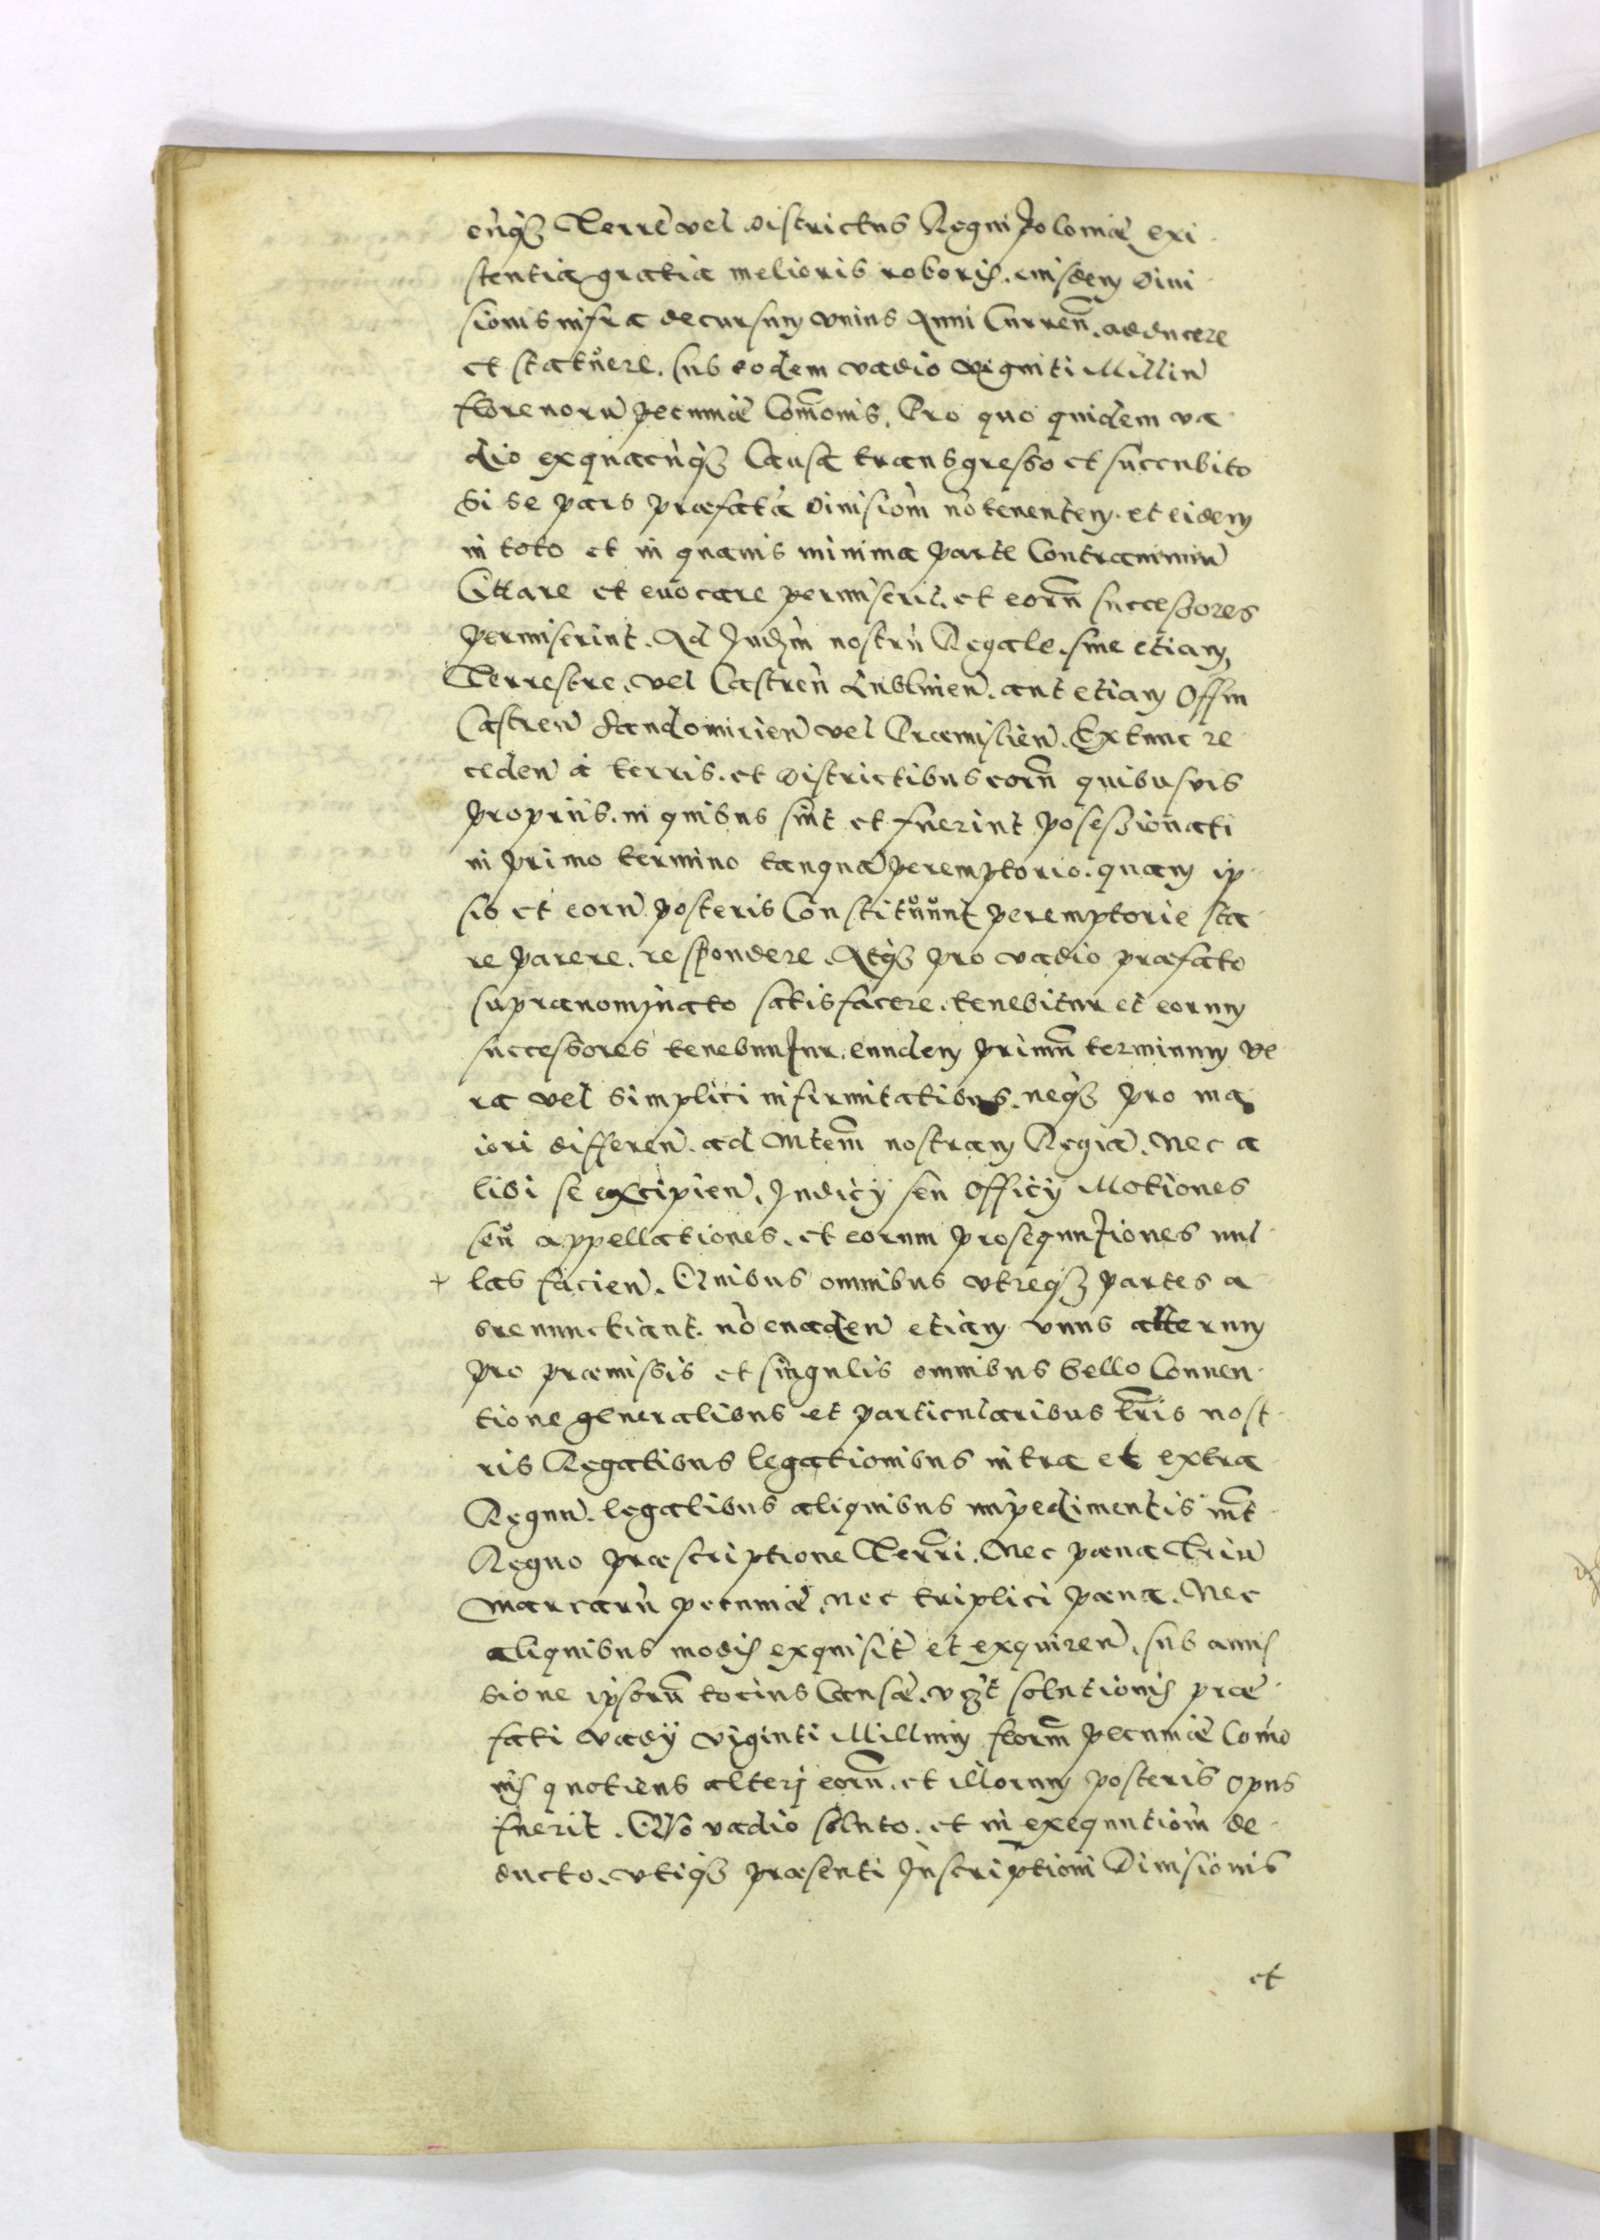 cunq3 Terrę vel districtus Regni Polonię exi
stentia gratia melioris roboris. eiusdem divi
sionis infra decursum vnius Anni Curren. adducere
et statuere. sub eodem vadio viginti Milliu
florenoru pecunię Comonis. Pro quo quidem va
dio ex quacunq3 Causa transgresso et succubito
Si se pars præfata divisiom no tenentem. et eidem
in toto et in quavis minima parte Contravenien
Cittare et evocare permiserit. et eorum successores
permiserint. Ad Judm nostru Regale. sive etiam
Terrestre. vel Castren Lublinen. aut etiam Offm
Castren Sandomirien vel Præmislien. Extunc re
ceden a terris. et districtibus eorum quibusvis
propriis. in quibus sint et fuerint possessionati
in primo termino tanqua peremptorio. quam ip
sis et eoru posteris Constituunt peremptorie sta
re parere. respondere. Atq3 pro vadio præfato
supranominato satisfacere. tenebitur et eorum
successores tenebuntur. eundem primum terminum ve
ra vel simplici infirmitatibus. neq3 pro ma
iori differen. ad Mtem nostram Regia. Nec a
libi se excipien. Judicÿ seu Officÿ Motiones
seu appellationes. et eorum prosequutiones nul
+ las facien. Quibus omnibus vtreq3 partes a
brenunctiant. no evaden etiam vnus alterum
pro præmissis et singulis omnibus bello Conven
tione generalibus et particularibus tris nost
ris Regalibus legationibus intra et extra
Regnu. legalibus aliquibus impedimentis int
Regno præscriptione Terrri. Nec pœna Triu
Marcaru pecunię. nec triplici pœna. Nec
aliquibus modis exquisit et exquiren. sub amis
sione ipsoru totius Causæ. vzt solutionis præ
fati vadÿ viginti Millium florm pecunię Como
nis quotiens alteri eoru. et illorum posteris opus
fuerit. Quo vadio soluto. et in exequutiom de
ducto. vtiq3 præsenti Inscriptioni Divisionis
et